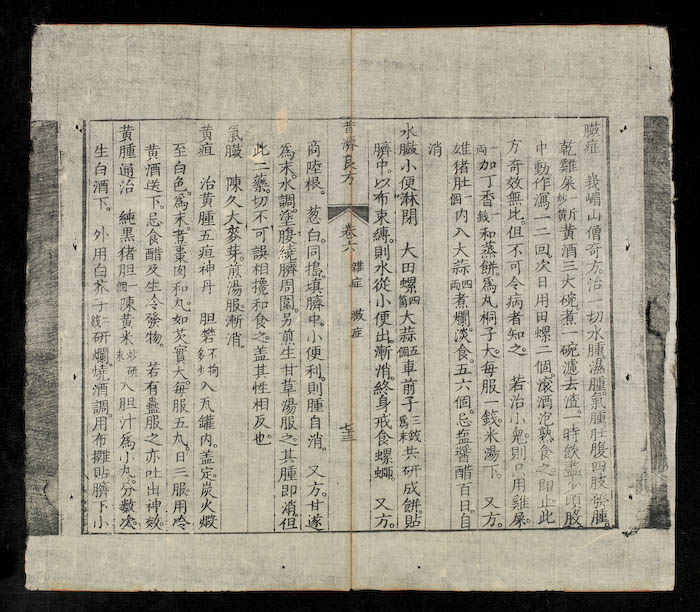 臌症　峩嵋山僧奇方治一切水腫濕腫氣腫肚腹四肢發腫
乾雞屎一斤炒黃黃酒三大碗煮一碗濾去渣一時飲盡少頃腹
中動作瀉一二回次日用田螺二個滾酒泡熟食之即止此
方奇效無比但不可令病者知之　若治小兒則只用雞屎
一兩加丁香一錢和蒸餅為丸桐子大每服一錢米湯下　又方
雄猪肚一個内入大蒜四兩煮爛淡食五六個忌盐醬醋百日自
消
水臌小便淋閉　大田螺四個大蒜五個車前子三錢為末共研成餅貼
臍中以布束縛則水從小便出漸消終身戒食螺螄　又方
商陸根　葱白同搗填臍中小便利則腫自消　又方甘遂
為末水調塗腹繞臍周圍另煎生甘草湯服之其腫即消但
此二藥切不可誤相攪和食之盖其性相反也
氣臌　陳久大麥芽煎湯服漸消
黃疸　治黃腫五疸神丹　胆礬不拘多少入瓦罐内盖定炭火煅
至白色為末煮棗肉和丸如芡實大每服五丸日三服用冷
黃酒送下忌食醋及生冷發物　若有蠱服之亦吐出神效
黃腫通治　純黑猪胆一個陳黃米炒研末入胆汁為小丸分數次
生白酒下　外用白芥子二錢研爛燒酒調用布攤貼臍下小
普濟良方
卷六　雜症　臌症
七三